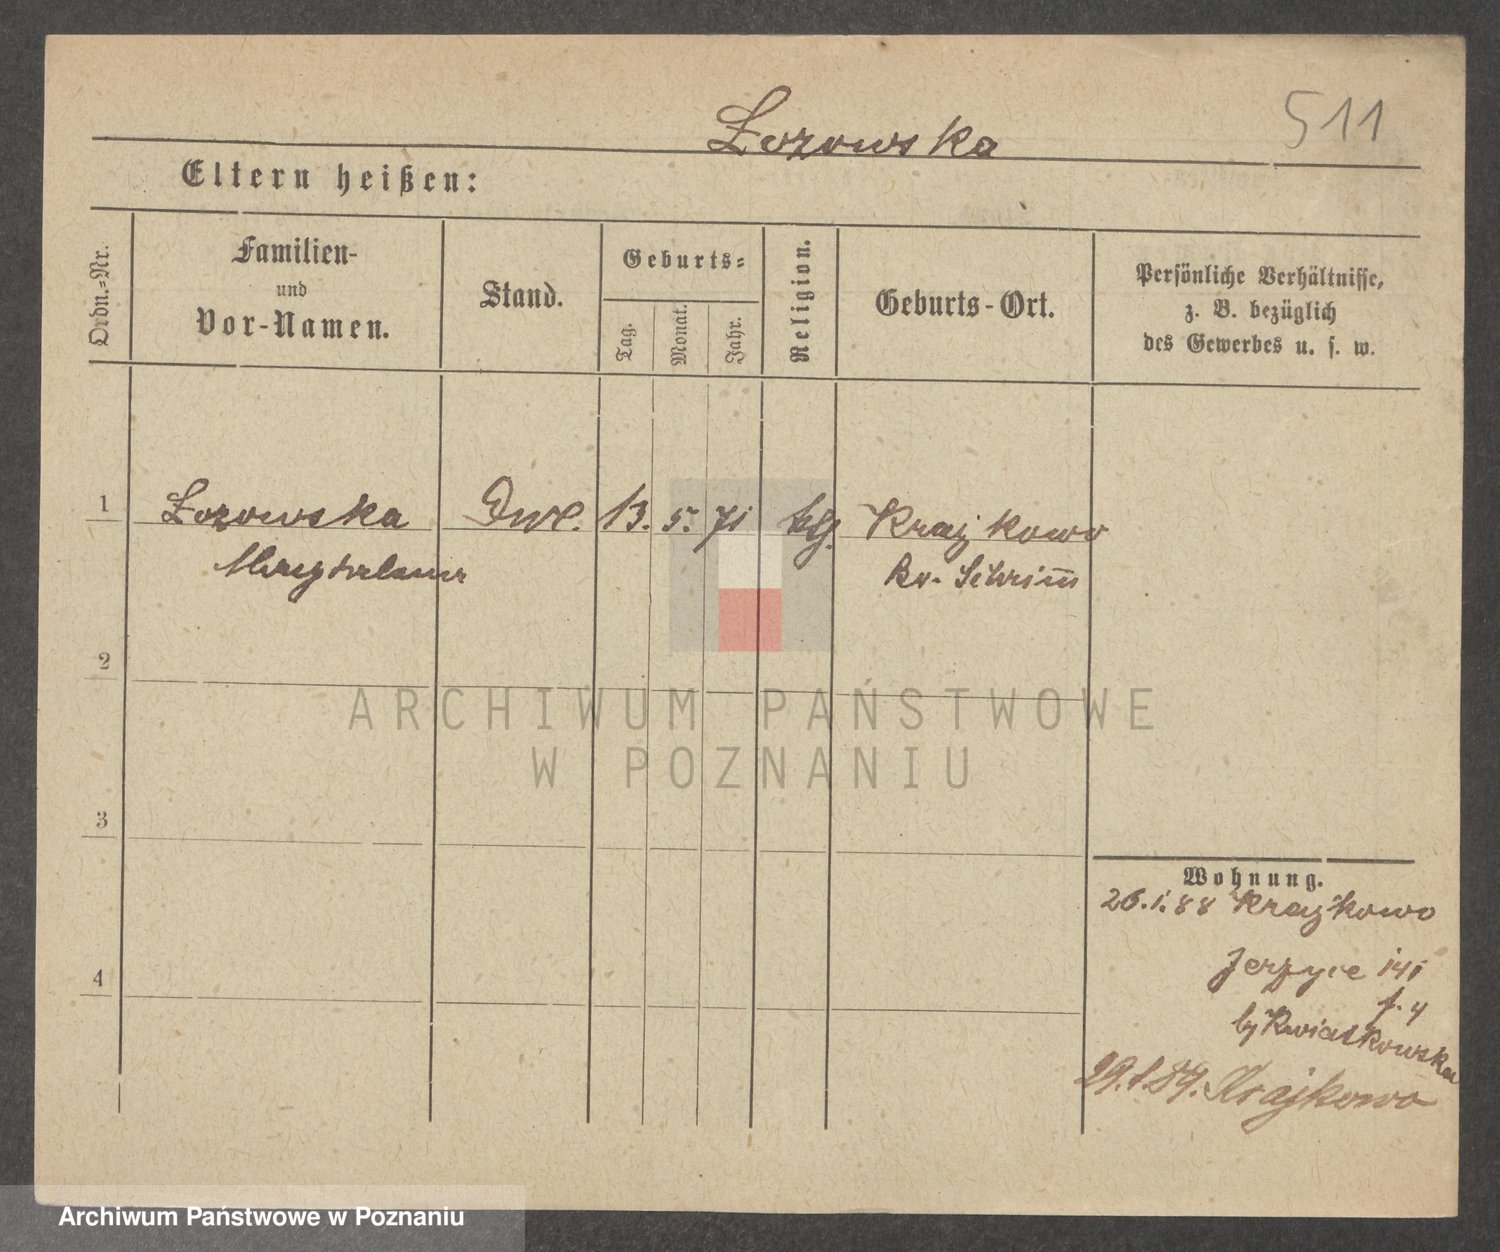 Lozowska
511
Eltern heißen:
Ordn.-Nr.
Familien-
und
Vor-Namen.
Stand.
Geburts-
Tag.
Monat.
Jahr.
Religion.
Geburts-Ort.
Persönliche Verhältnisse,
z. B. bezüglich
des Gewerbes u. s. w.
1
Lozowska
13. 5. 71
Krajkowo
Magdalena
Kr. Schrim̅
2
ARCHIWUM PAŃSTWOWE
W POZNANIU
3
Wohnung.
26.1.88 Krajkowo
4
Jerzyce 141
by Kwiatkowska
29.1.89. Krajkowo
Archiwum Państwowe w Poznaniu